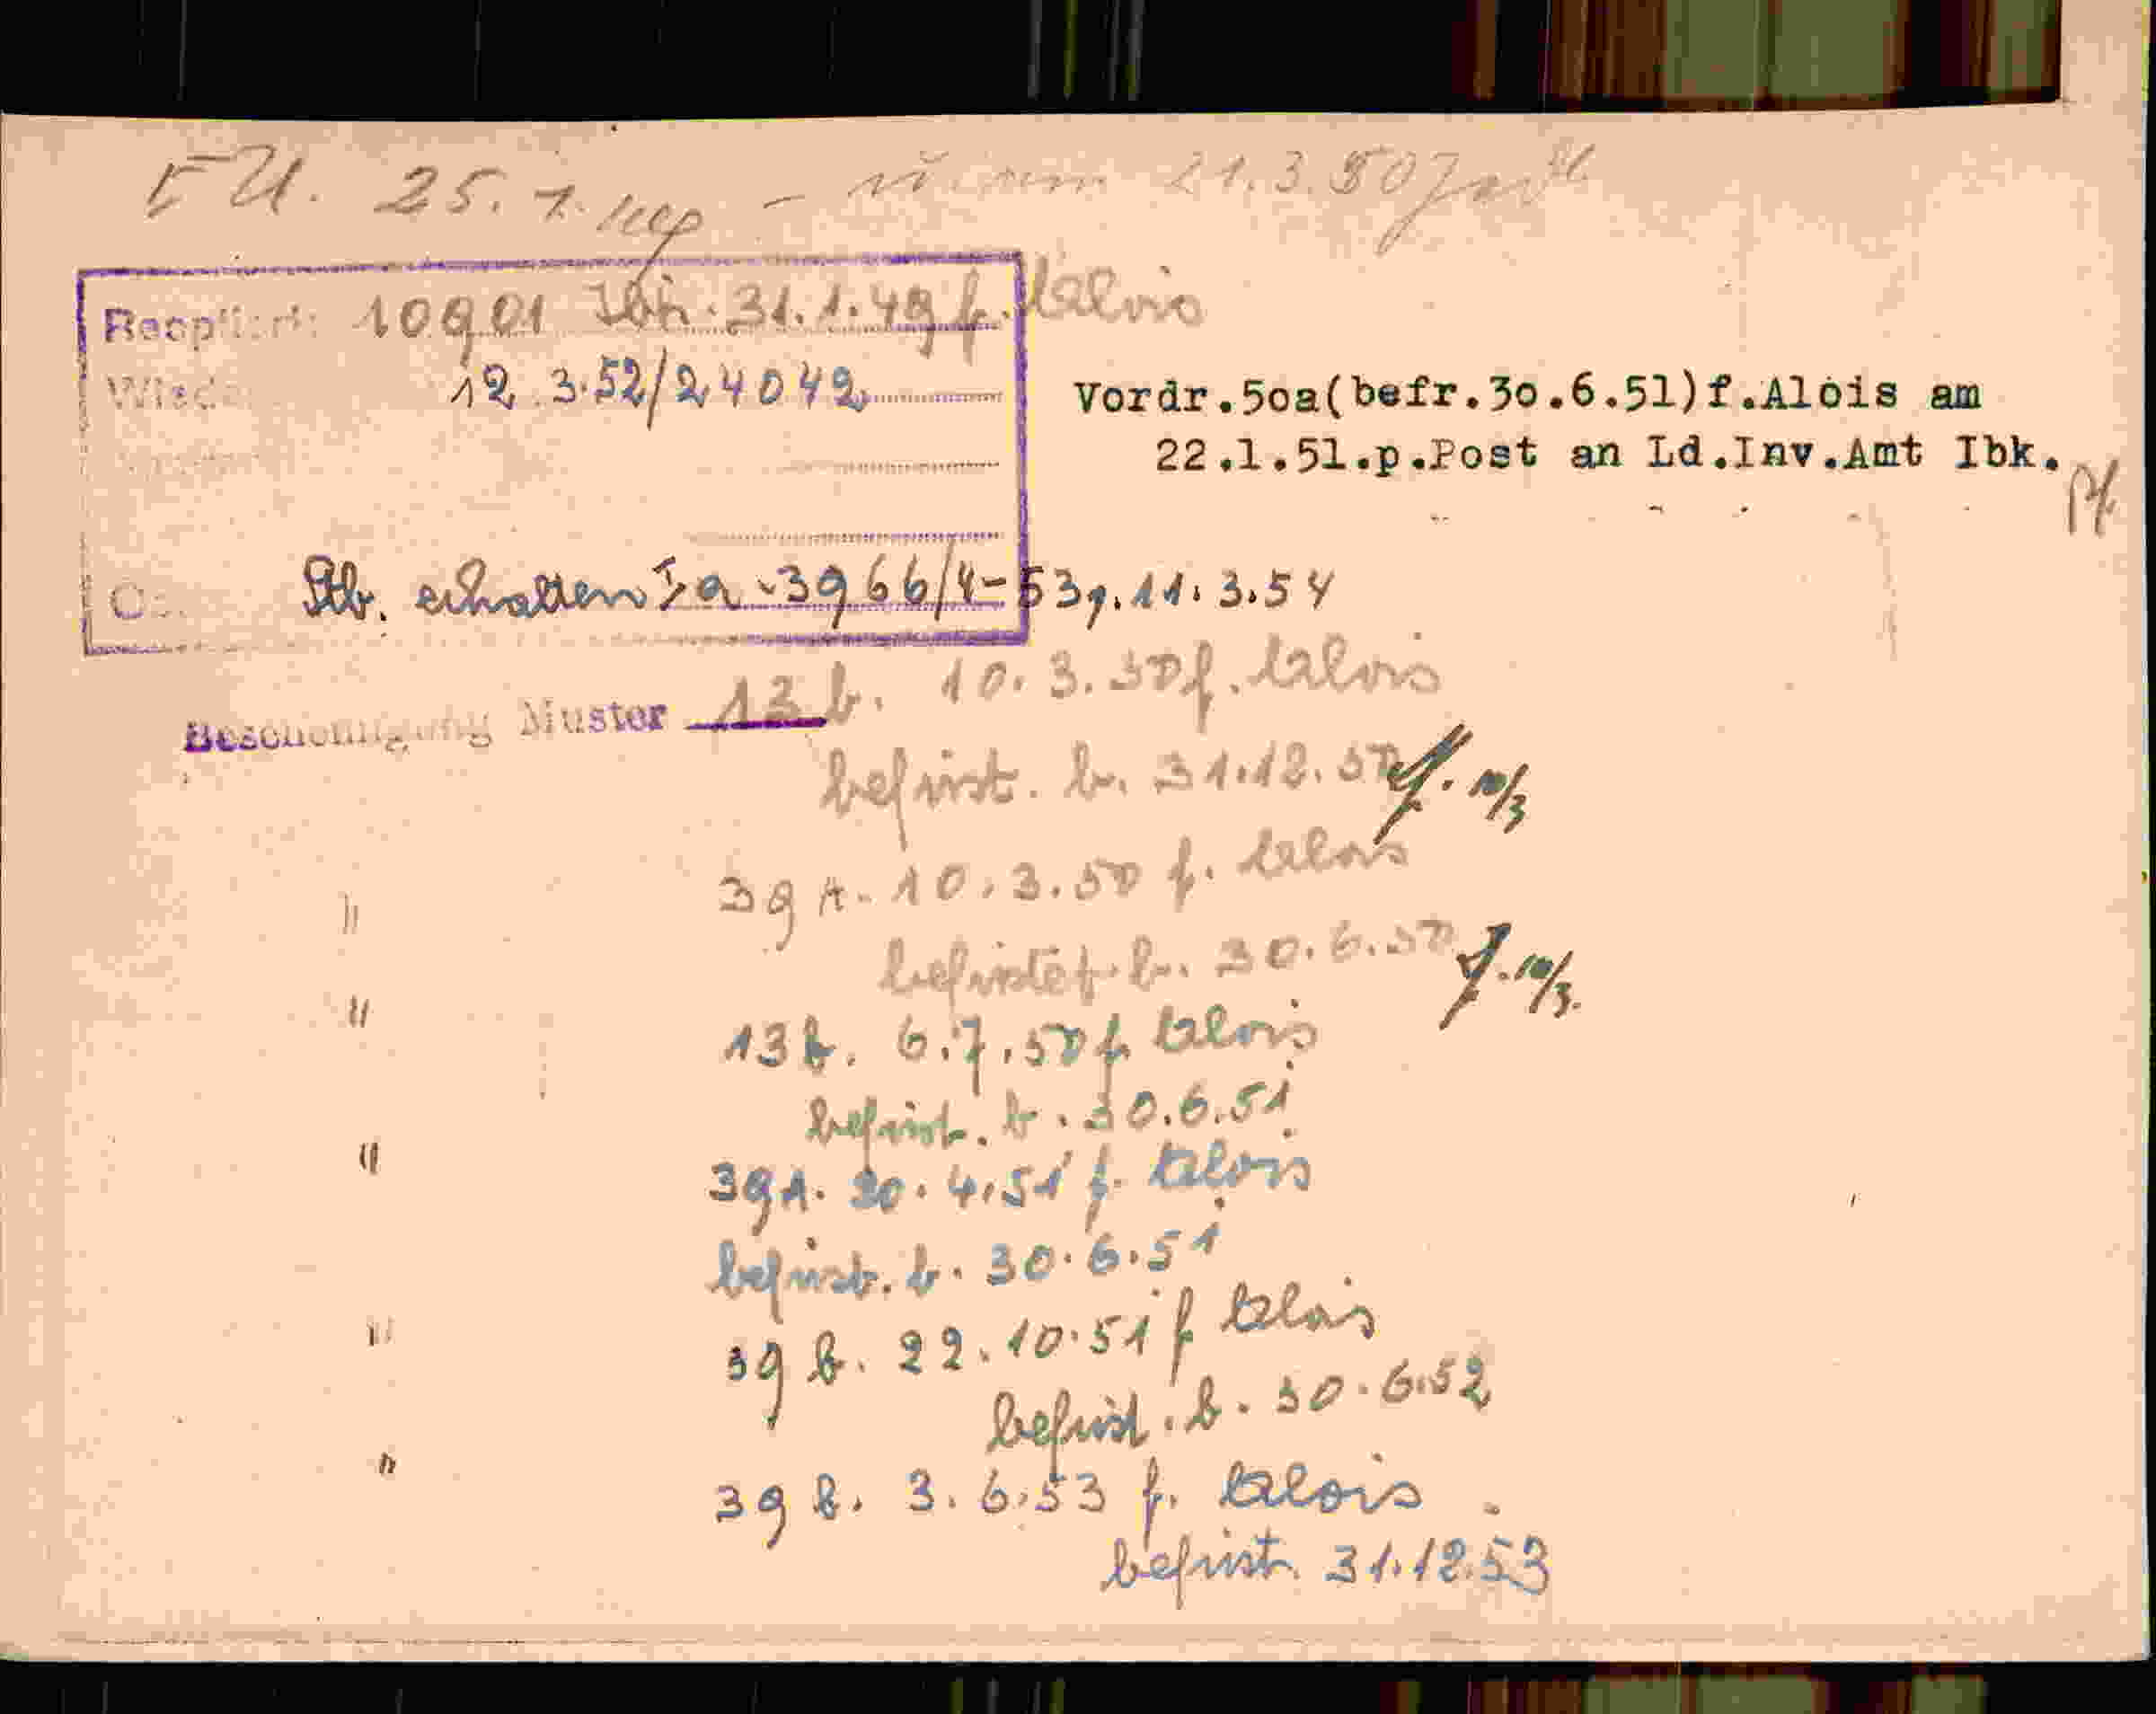 FU. 25. 7. - 21.3.50
10901 Ibk. 31.1.49 f. Alois
12.3.52/24042
Vordr.50a(befr.30.6.51)f.Alois am
22.1.51.p.Post an Ld.Inv.Amt Ibk.
Stb. erhalten Ia-3966/4-53 11.3.54
Bescheinigung Muster 13 b. 10.3.50 f. Alois
befrist. b. 31.12.50 10/3
" 39 A. 10.3.50 f. Alois
befristet b. 30.6.50 10/3.
" 13 b. 6.7.50 f. Alois
befrist. b. 30.6.51
" 39 A. 20.4.51 f. Alois
befrist. b. 30.6.51
" 39 b. 22.10.51 f Alois
befrist. b. 30.6.52
" 39 b. 3.6.53 f. Alois
befrist. 31.12.53